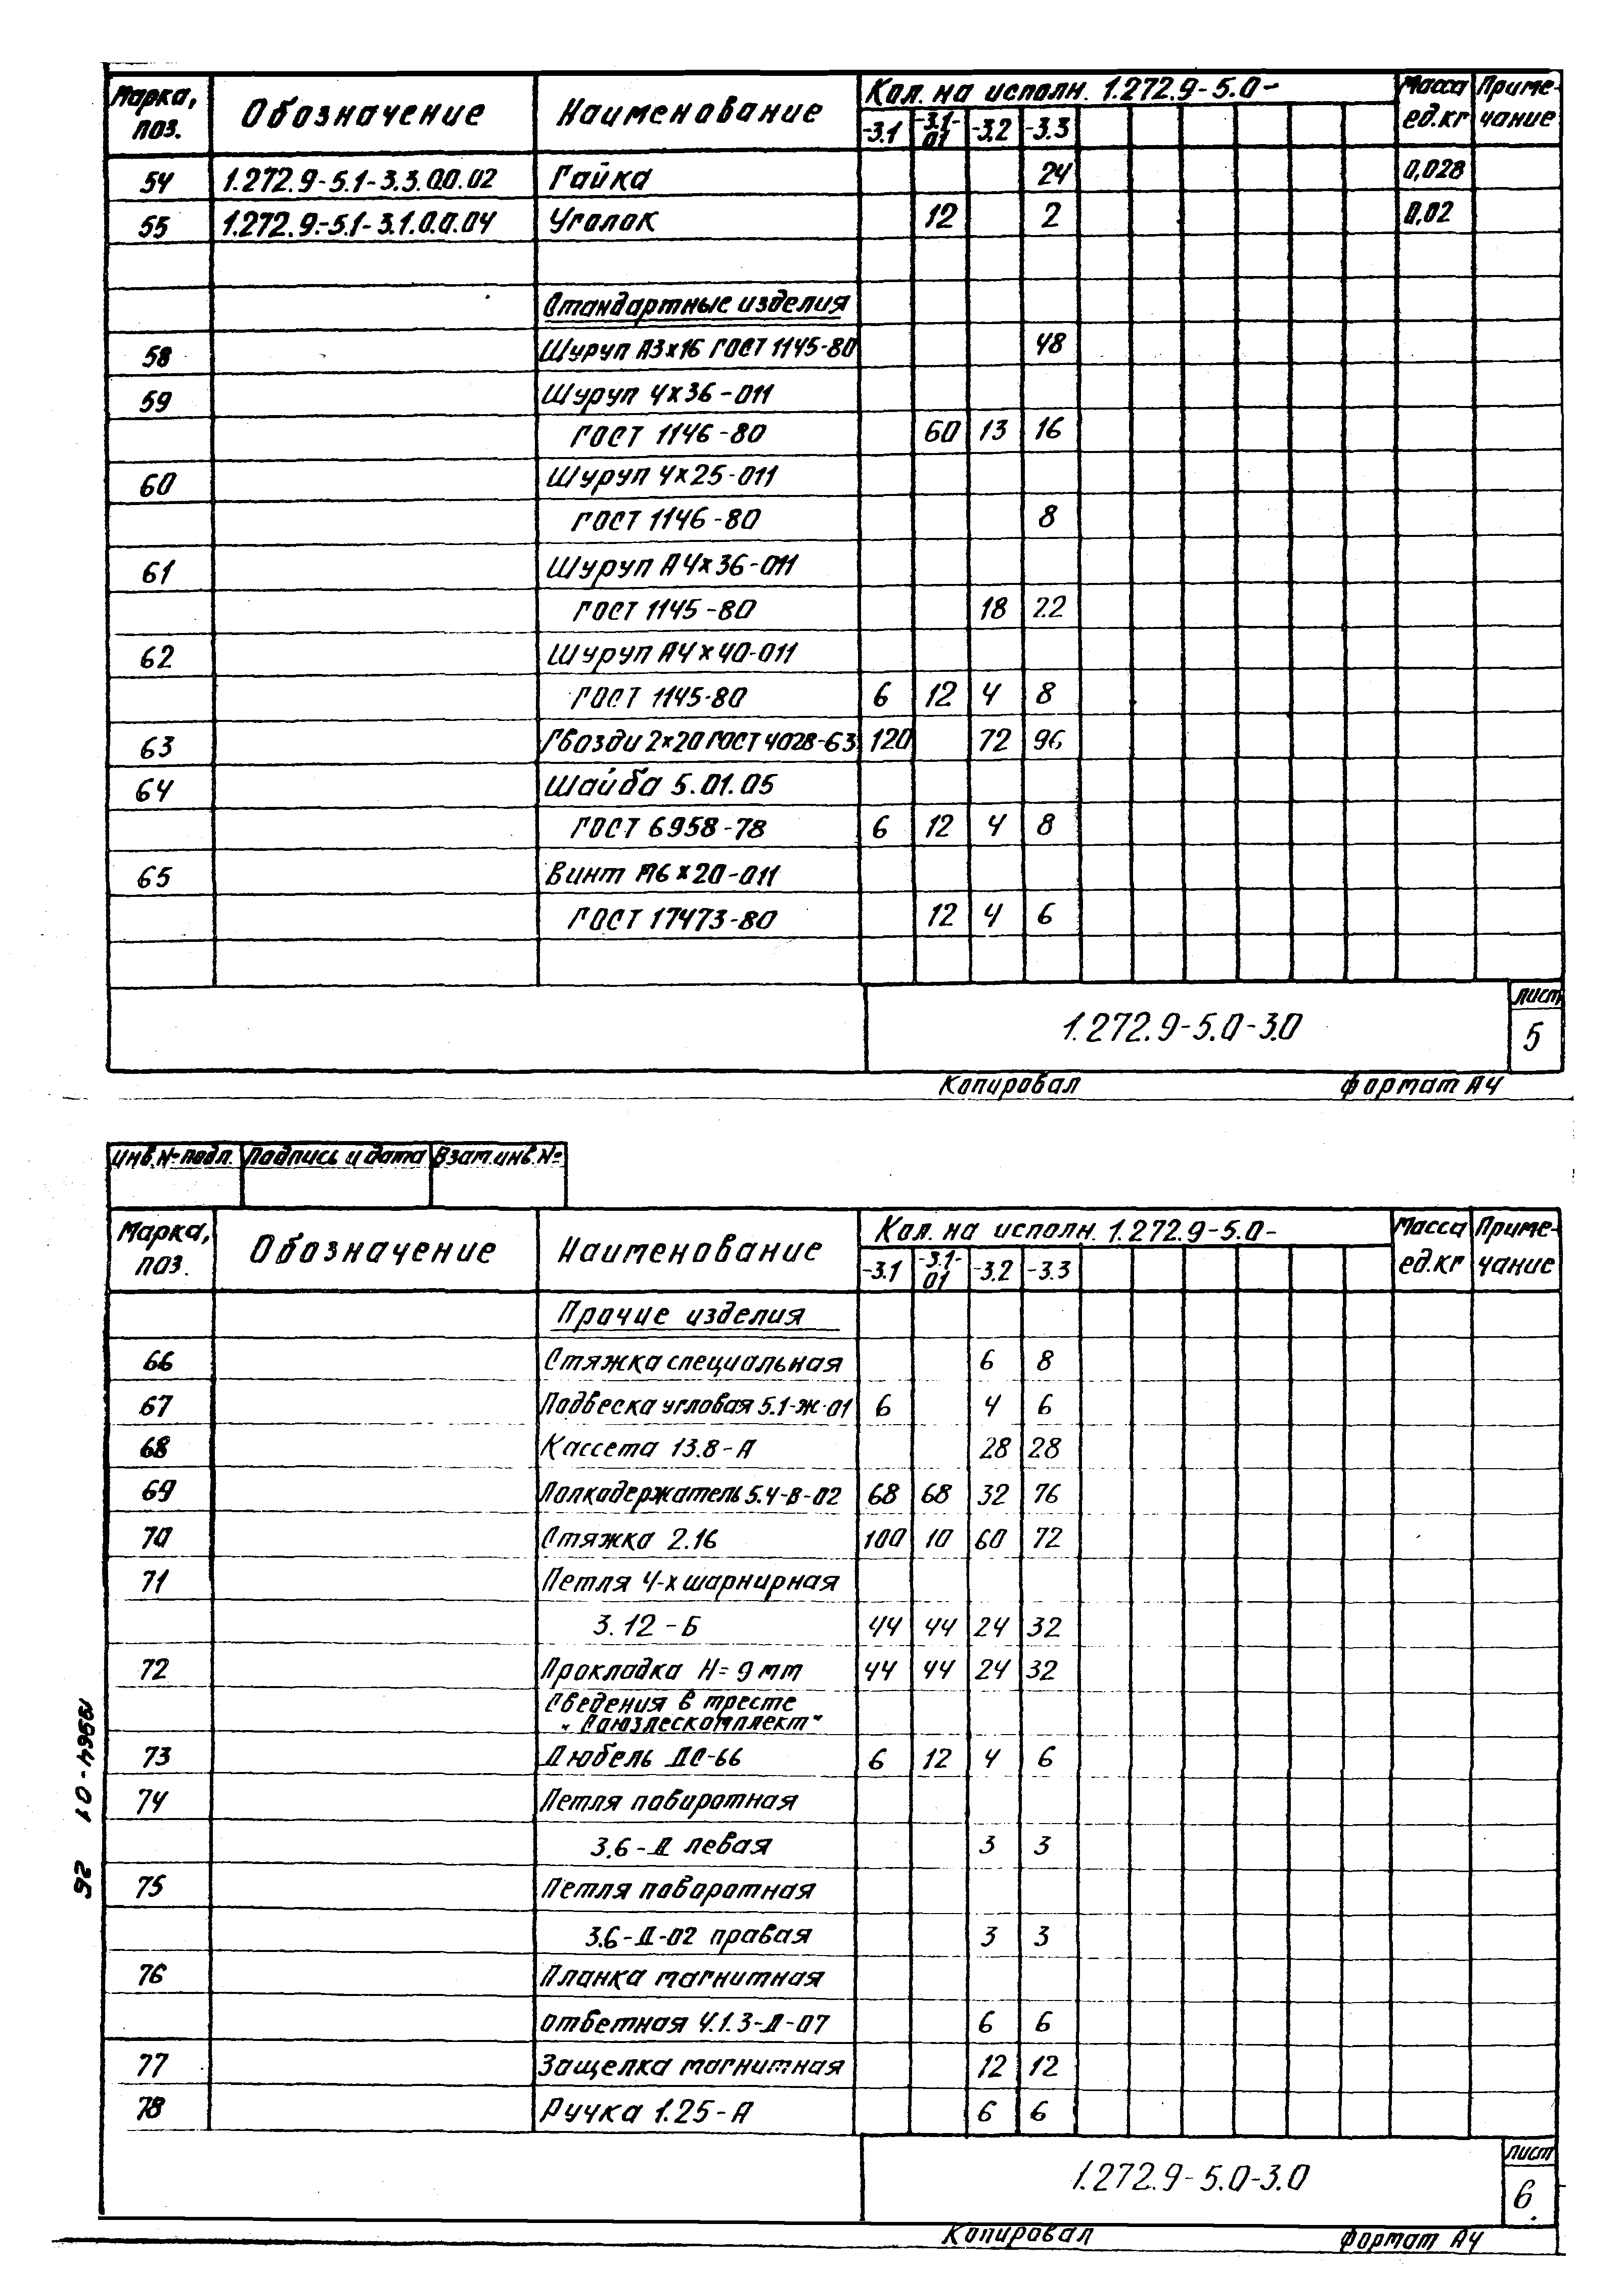 Марка, поз. Обозначение Наименование Кол. на исполн. 1.272.9-5.0- Масса ед.кг Примечание
-3.1 -3.1-01 -3.2 -3.3
54 1.272.9-5.1-3.3.0.0.02 Гайка 24 0,028
55 1.272.9-5.1-3.1.0.0.04 Уголок 12 2 0,02
Стандартные изделия
58 Шуруп А3х16 ГОСТ 1145-80 48
59 Шуруп 4х36-011
ГОСТ 1146-80 60 13 16
60 Шуруп 4х25-011
ГОСТ 1146-80 8
61 Шуруп А4х36-011
ГОСТ 1145-80 18 22
62 Шуруп А4х40-011
ГОСТ 1145-80 6 12 4 8
63 Гвозди 2х20 ГОСТ 4028-63 120 72 96
64 Шайба 5.01.05
ГОСТ 6958-78 6 12 4 8
65 Винт М6х20-011
ГОСТ 17473-80 12 4 6
1.272.9-5.0-3.0 лист 5
Копировал формат А4
инв.№ подл. Подпись и дата Взам.инв.№
Марка, поз. Обозначение Наименование Кол. на исполн. 1.272.9-5.0- Масса ед.кг Примечание
-3.1 -3.1-01 -3.2 -3.3
Прочие изделия
66 Стяжка специальная 6 8
67 Подвеска угловая 5.1-Ж-01 6 4 6
68 Кассета 13.8-А 28 28
69 Полкодержатель 5.4-В-02 68 68 32 76
70 Стяжка 2.16 100 10 60 72
71 Петля 4-х шарнирная
3.12-Б 44 44 24 32
72 Прокладка Н=9мм 44 44 24 32
Сведения в тресте
"Союзлескомплект"
73 Дюбель ДС-66 6 12 4 6
74 Петля поворотная
3.6-Д левая 3 3
75 Петля поворотная
3.6-Д-02 правая 3 3
76 Планка магнитная
ответная 4.1.3-Д-07 6 6
77 Защелка магнитная 12 12
78 Ручка 1.25-А 6 6
1.272.9-5.0-3.0 лист 6
Копировал формат А4
19964-01 26